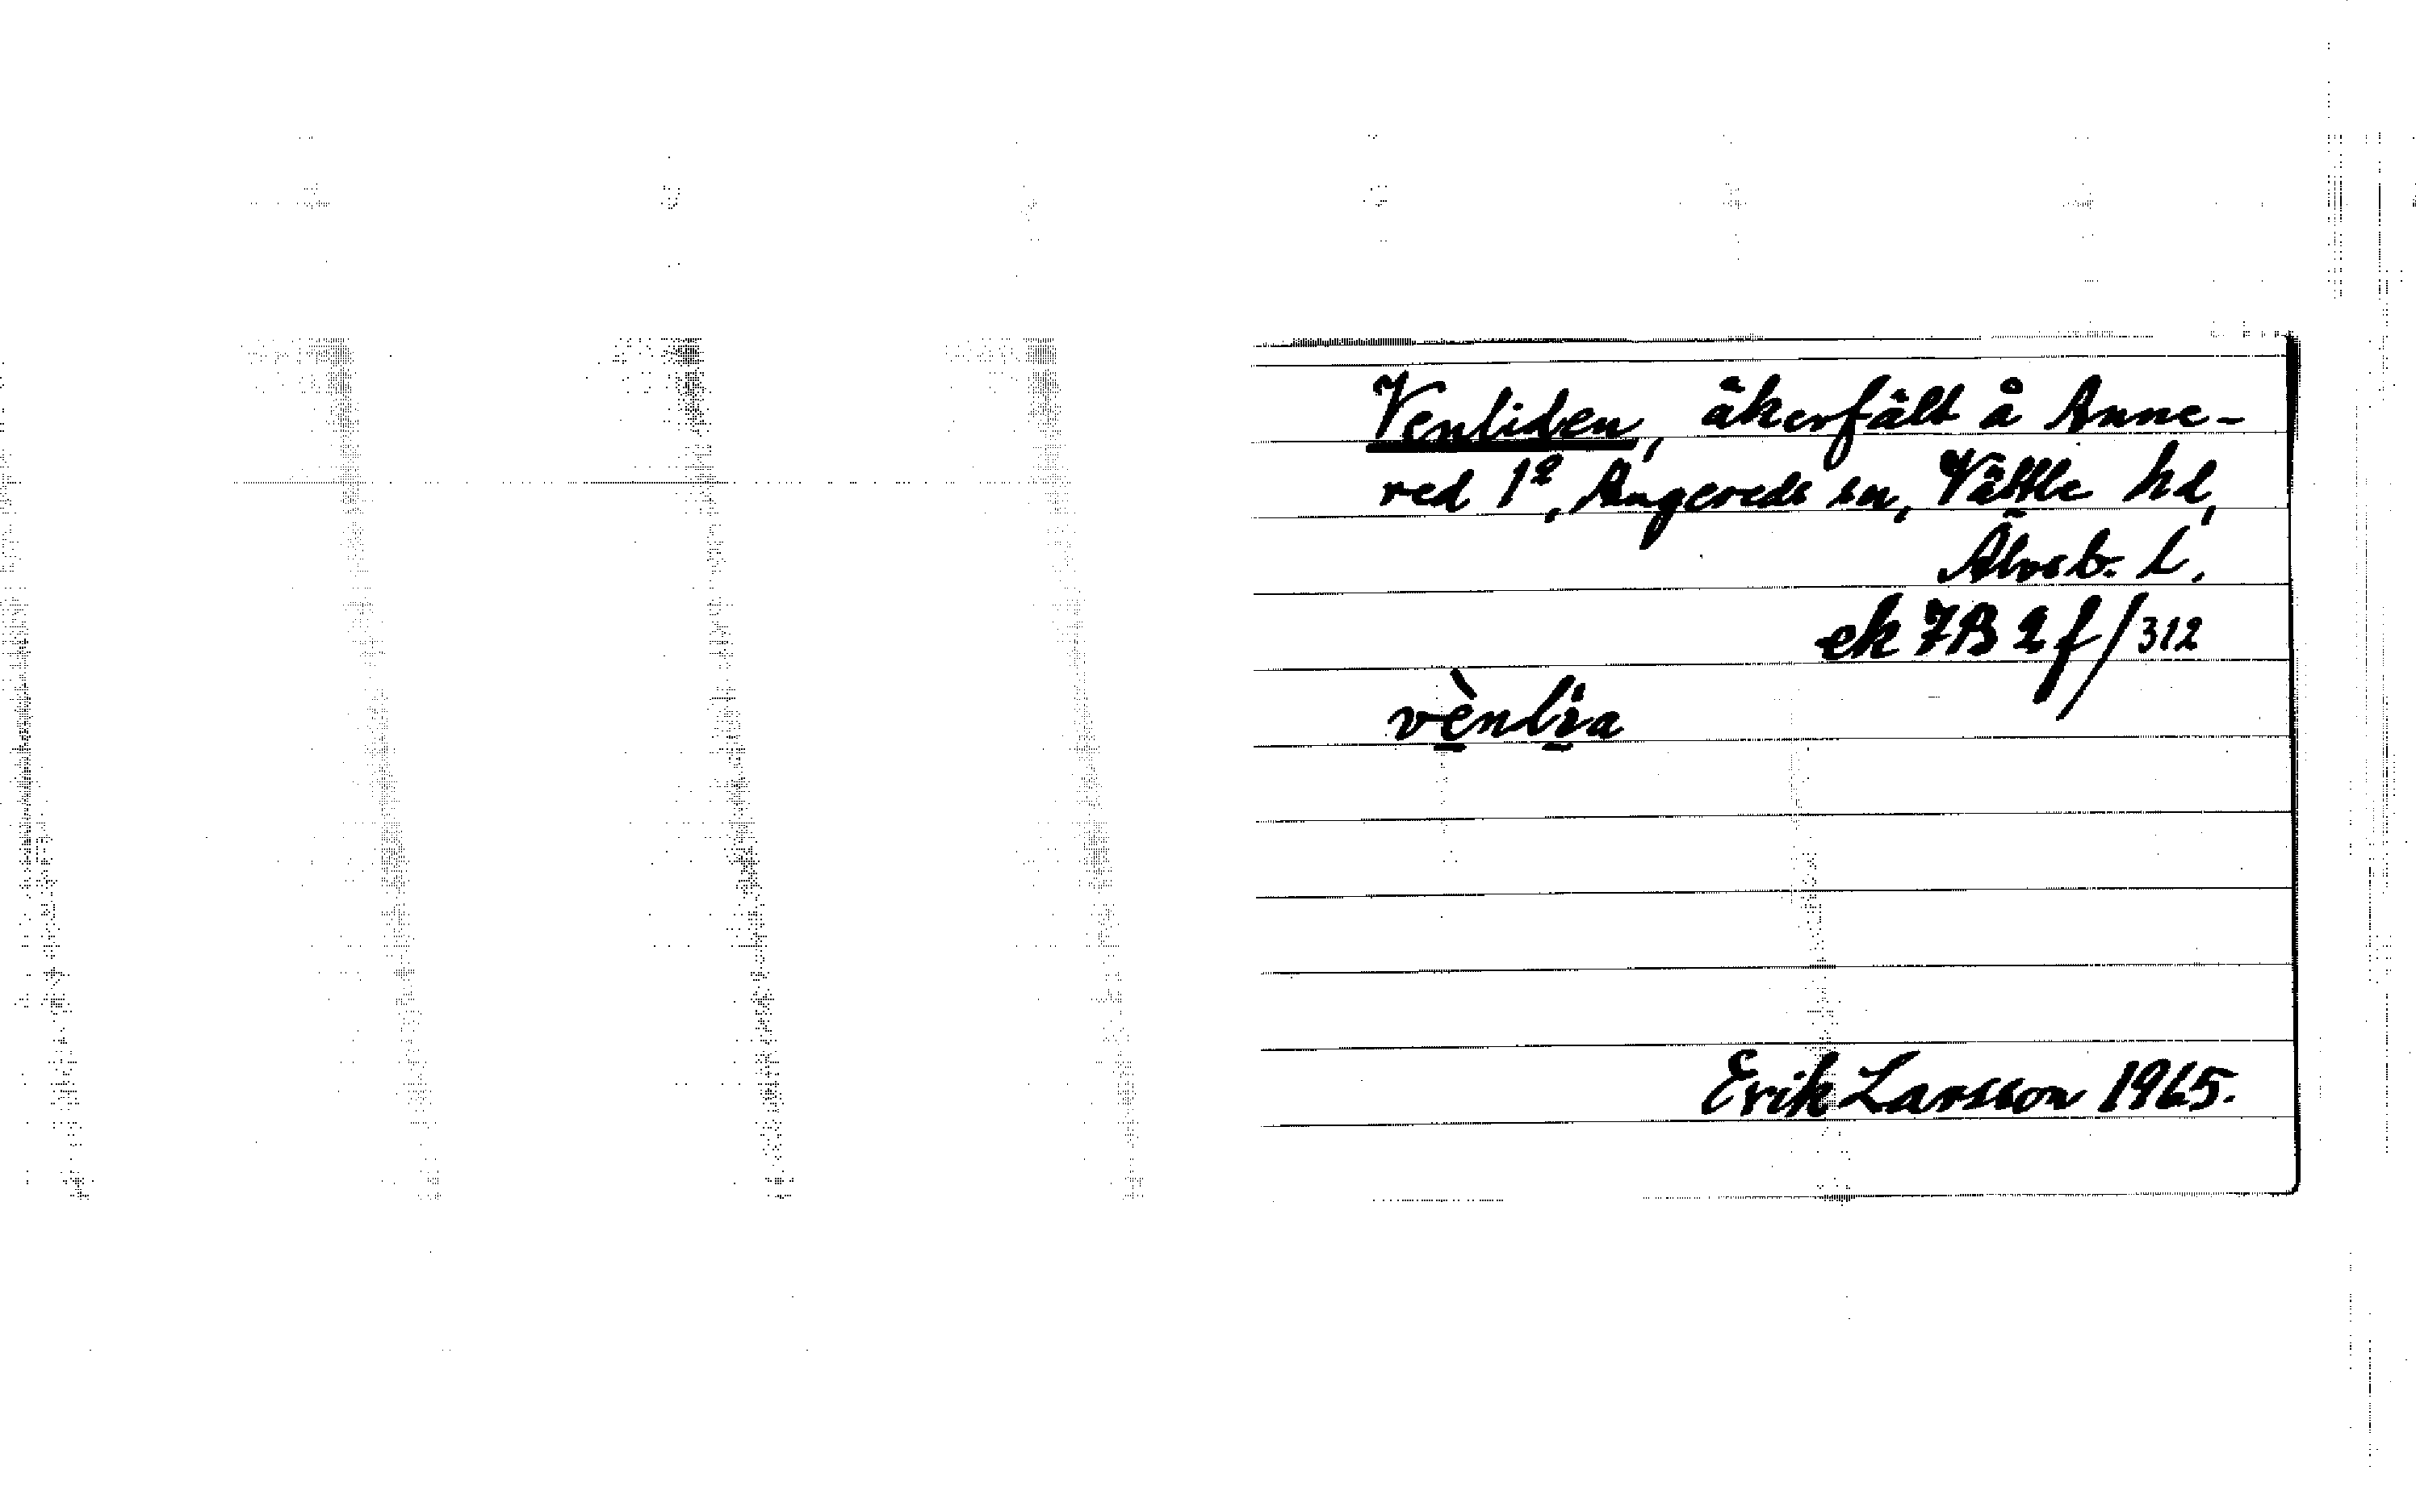 Venliden, åkerfält å Anne-
red 1º, Angereds sn, Vättle hd,
Älvsb. L.
ek 7B 2f/312
vènlia
Erik Larsson 1965.